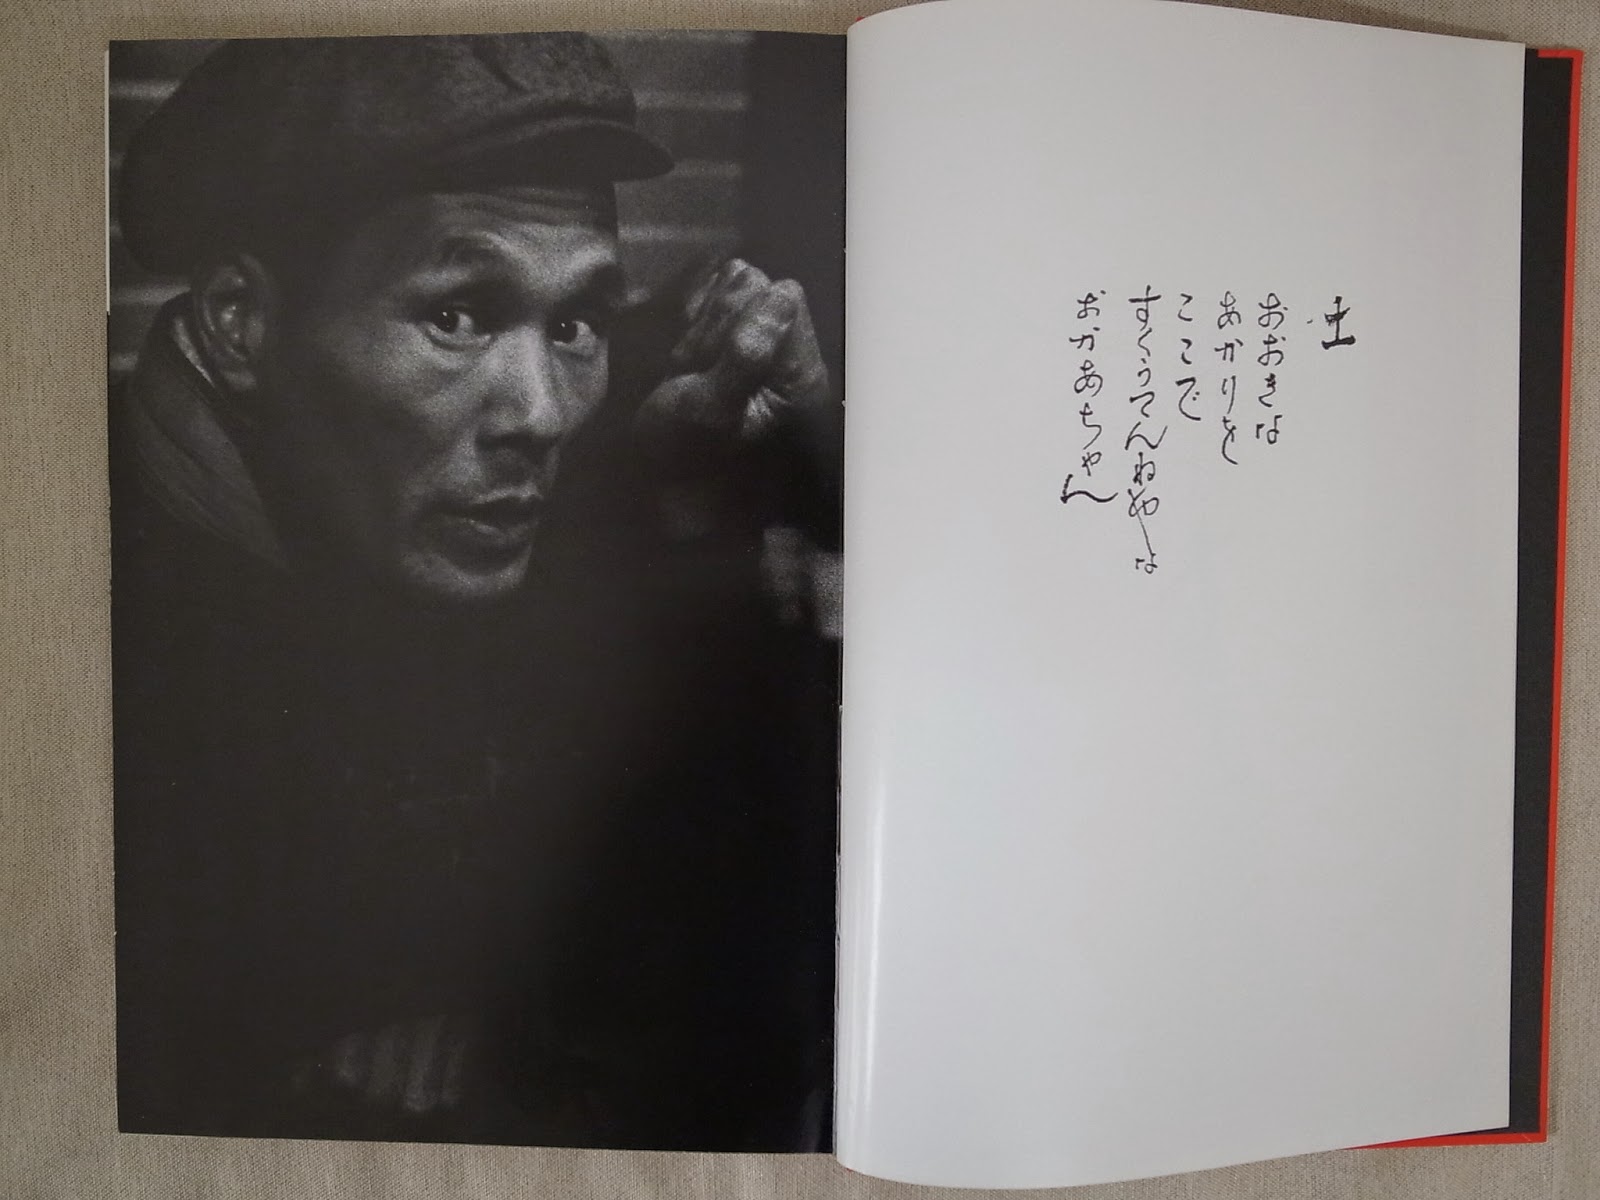 土
おおきな
あかりを
ここで
すくうてんねやな
おかあちゃん